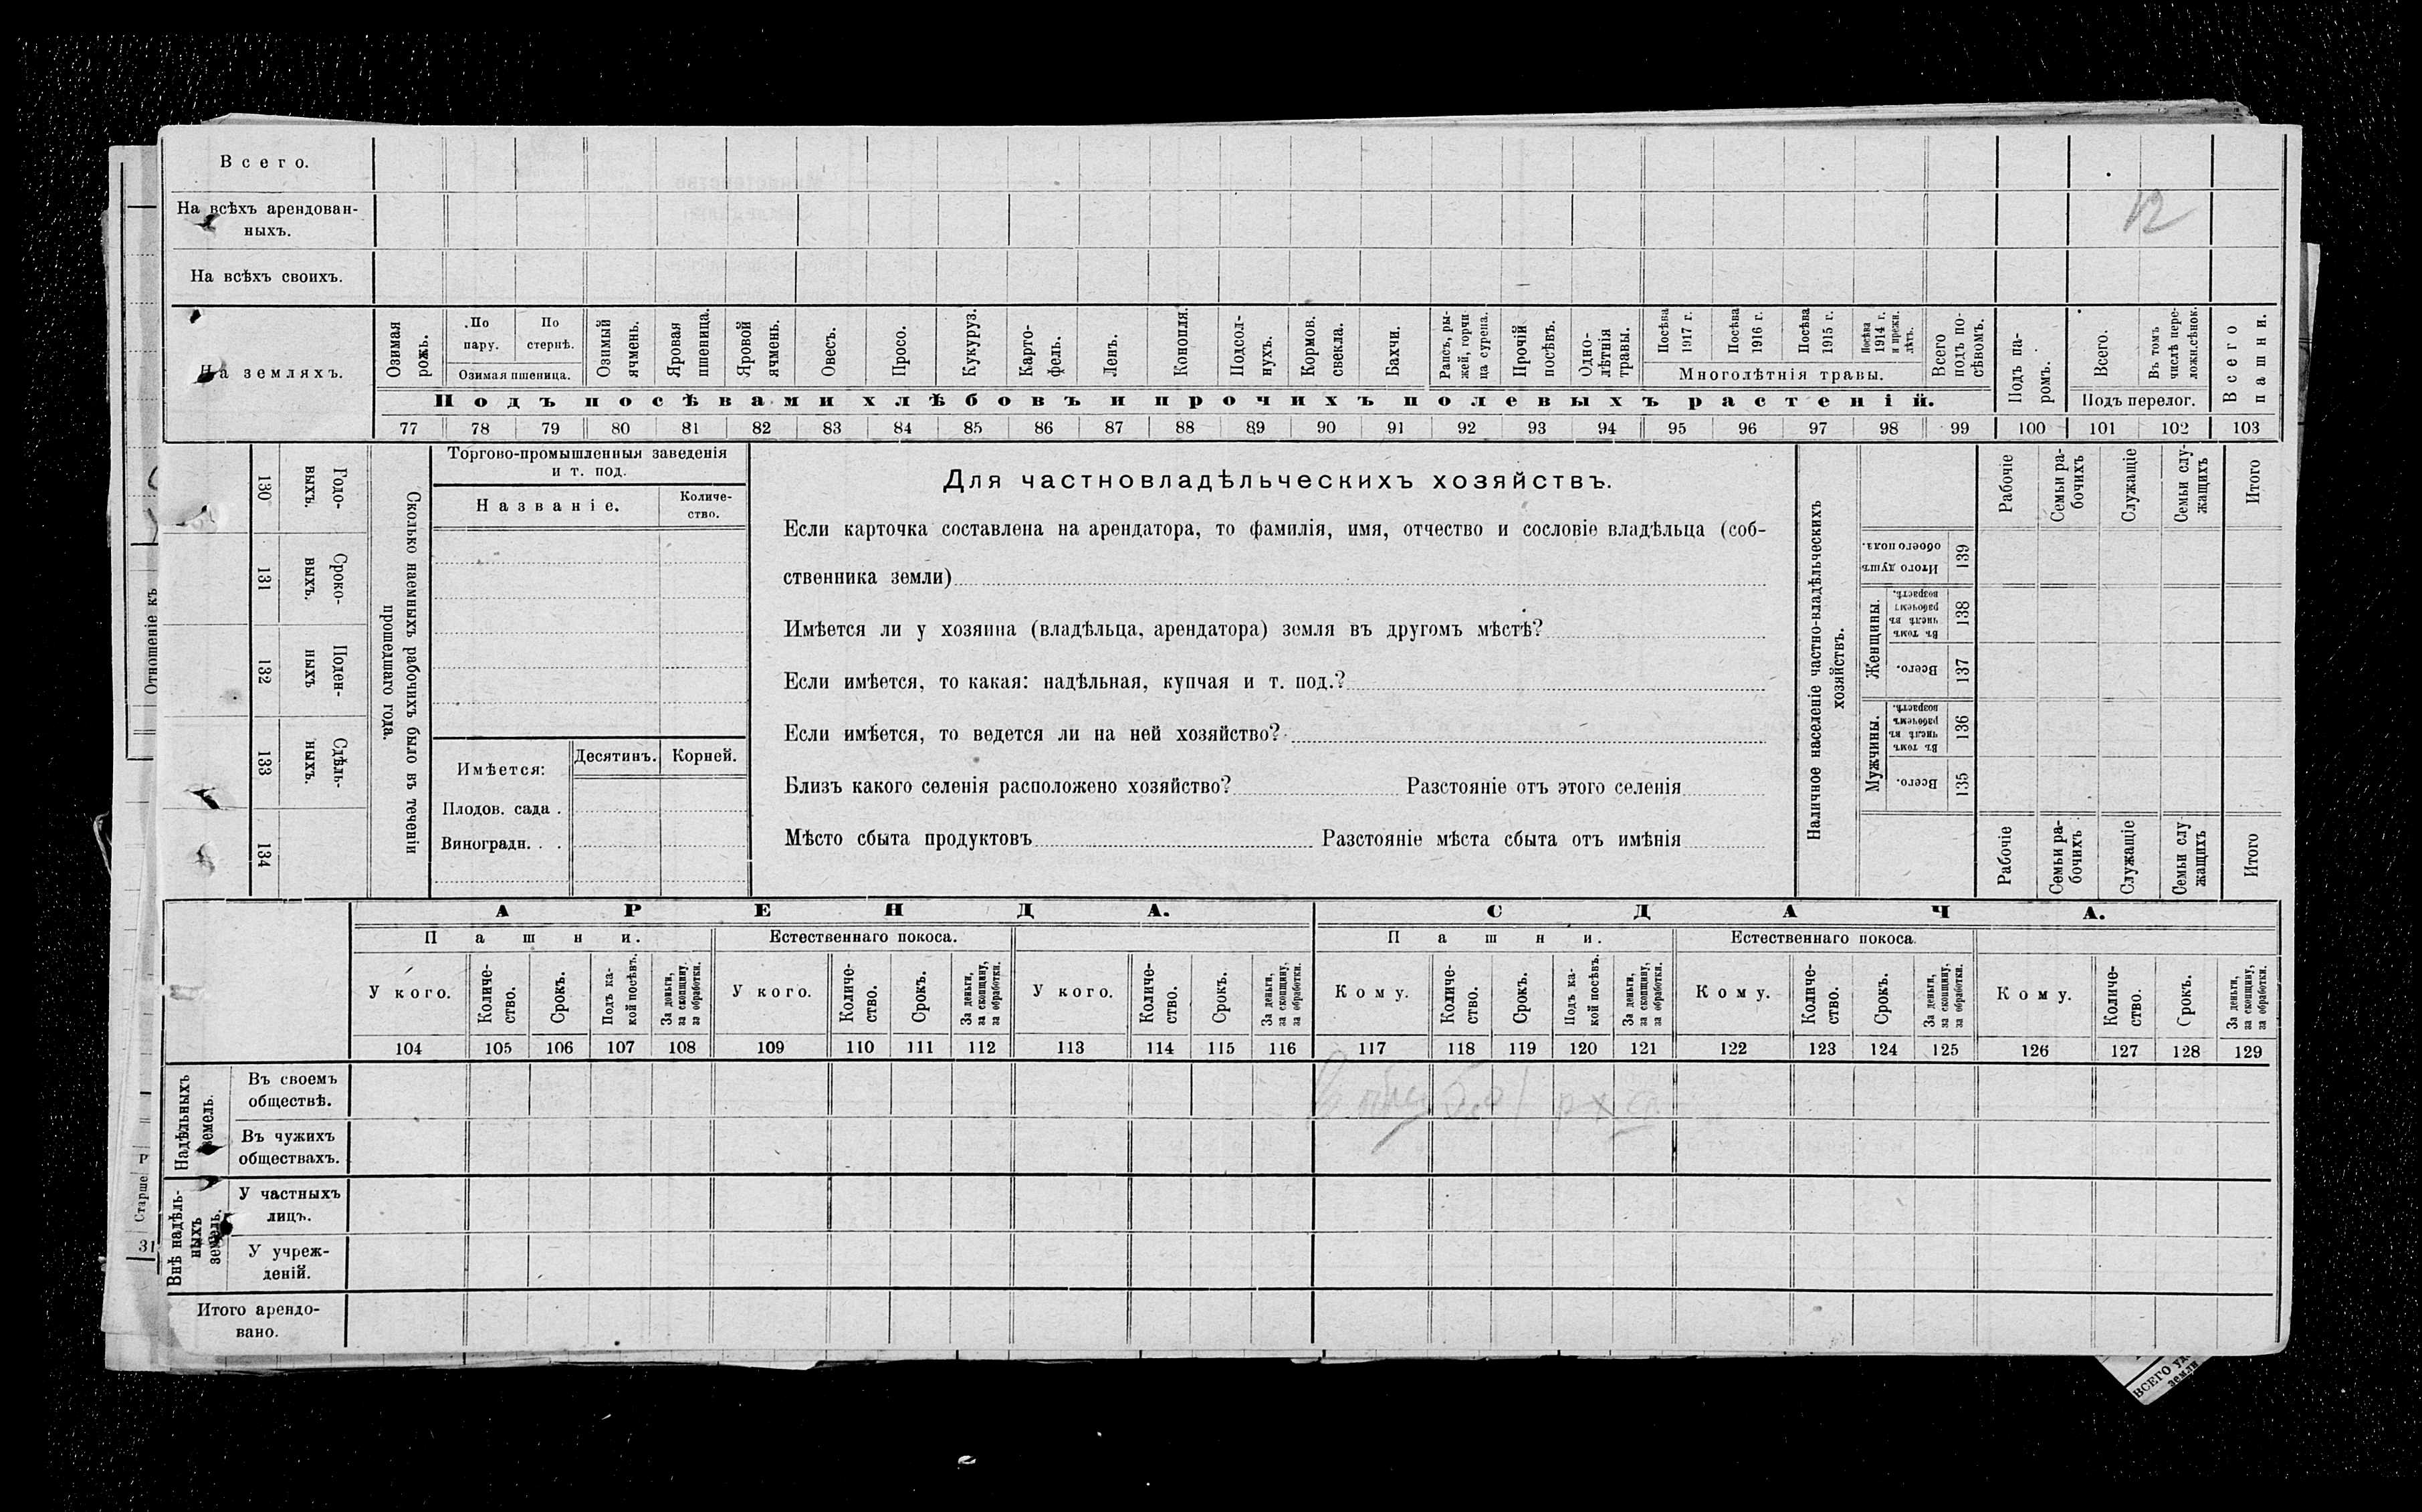 Всего.
На всѣхъ арендован-
ныхъ.
12
На всѣхъ своихъ.
На земляхъ.
Озимая
рожь.
По
пару.
По
стернѣ.
Озимая пшеница.
Озимый
ячмень.
Яровая
пшеница.
Яровой
ячмень.
Овесъ.
Просо.
Кукуруз.
Карто-
фель.
Ленъ.
Конопля.
Подсол-
нухъ.
Кормов.
свекла.
Бахчи.
Рапсъ, ры-
жей, горчи-
ца сурепа.
Прочій
посѣвъ.
Одно-
лѣтнія
травы.
Посѣва
1917 г.
Посѣва
1916 г.
Посѣва
1915 г.
Посѣва
1914 г.
и прежн.
лѣтъ.
Многолѣтнія травы.
Всего
подъ по-
сѣвомъ.
Подъ па-
ромъ.
Всего.
Въ томъ
числѣ пере-
ложн.сѣнок.
Подъ перелог.
Всего
пашни.
Подъ посѣвами хлѣбовъ и прочихъ полевыхъ растеній.
77 78 79 80 81 82 83 84 85 86 87 88 89 90 91 92 93 94 95 96 97 98 99 100 101 102 103
130
Годо-
выхъ.
131
Сроко-
выхъ.
132
Поден-
ныхъ
133
Сдѣль-
ныхъ.
134
Сколько наемныхъ рабочихъ было въ теченіи
прошедшаго года.
Торгово-промышленныя заведенія
и т. под.
Названіе.
Количе-
ство.
Имѣется:
Десятинъ.
Корней.
Плодов. сада .
Виноградн. . .
Для частновладѣльческихъ хозяйствъ.
Если карточка составлена на арендатора, то фамилія, имя, отчество и сословіе владѣльца (соб-
ственника земли)
Имѣется ли у хозяина (владѣльца, арендатора) земля въ другомъ мѣстѣ?
Если имѣется, то какая: надѣльная, купчая и т. под.?
Если имѣется, то ведется ли на ней хозяйство?
Близъ какого селенія расположено хозяйство? Разстояніе отъ этого селенія
Мѣсто сбыта продуктовъ Разстояніе мѣста сбыта отъ имѣнія
Наличное населеніе частно-владѣльческихъ
хозяйствъ.
Рабочіе
Семьи ра-
бочихъ
Служащіе
Семьи слу-
жащихъ
Итого
Итого душъ
обоего пола.
139
Женщины.
Въ томъ
числѣ въ
рабочемъ
возрастѣ.
138
Всего.
137
Мужчины.
Въ томъ
числѣ въ
рабочемъ
возрастѣ.
136
Всего.
135
Рабочіе
Семьи ра-
бочихъ
Служащіе
Семьи слу
жащихъ
Итого
АРЕНДА.
СДАЧА.
Пашни.
Естественнаго покоса.
Пашни.
Естественнаго покоса.
У кого.
Количе-
ство.
Срокъ.
Подъ ка-
кой посѣвъ.
За деньги,
за скопщину,
за обработки.
У кого.
Количе-
ство.
Срокъ.
За деньги,
за скопщину,
за обработки.
У кого.
Количе-
ство.
Срокъ.
За деньги,
за скопщину,
за обработки.
Кому.
Количе-
ство.
Срокъ.
Подъ ка-
кой посѣвъ.
За деньги,
за скопщину,
за обработки.
Кому.
Количе-
ство.
Срокъ.
За деньги,
за скопщину,
за обработки.
Кому.
Количе-
ство.
Срокъ.
За деньги,
за скопщину,
за обработки.
104 105 106 107 108 109 110 111 112 113 114 115 116 117 118 119 120 121 122 123 124 125 126 127 128 129
Надѣльныхъ
земель.
Въ своемъ
обществѣ.
Въ чужихъ
обществахъ.
Внѣ надѣль-
ныхъ
земель.
У частныхъ
лицъ.
У учреж-
деній.
Итого арендо-
вано.
Отношеніе къ
Старше
31
ВСЕГО
земли